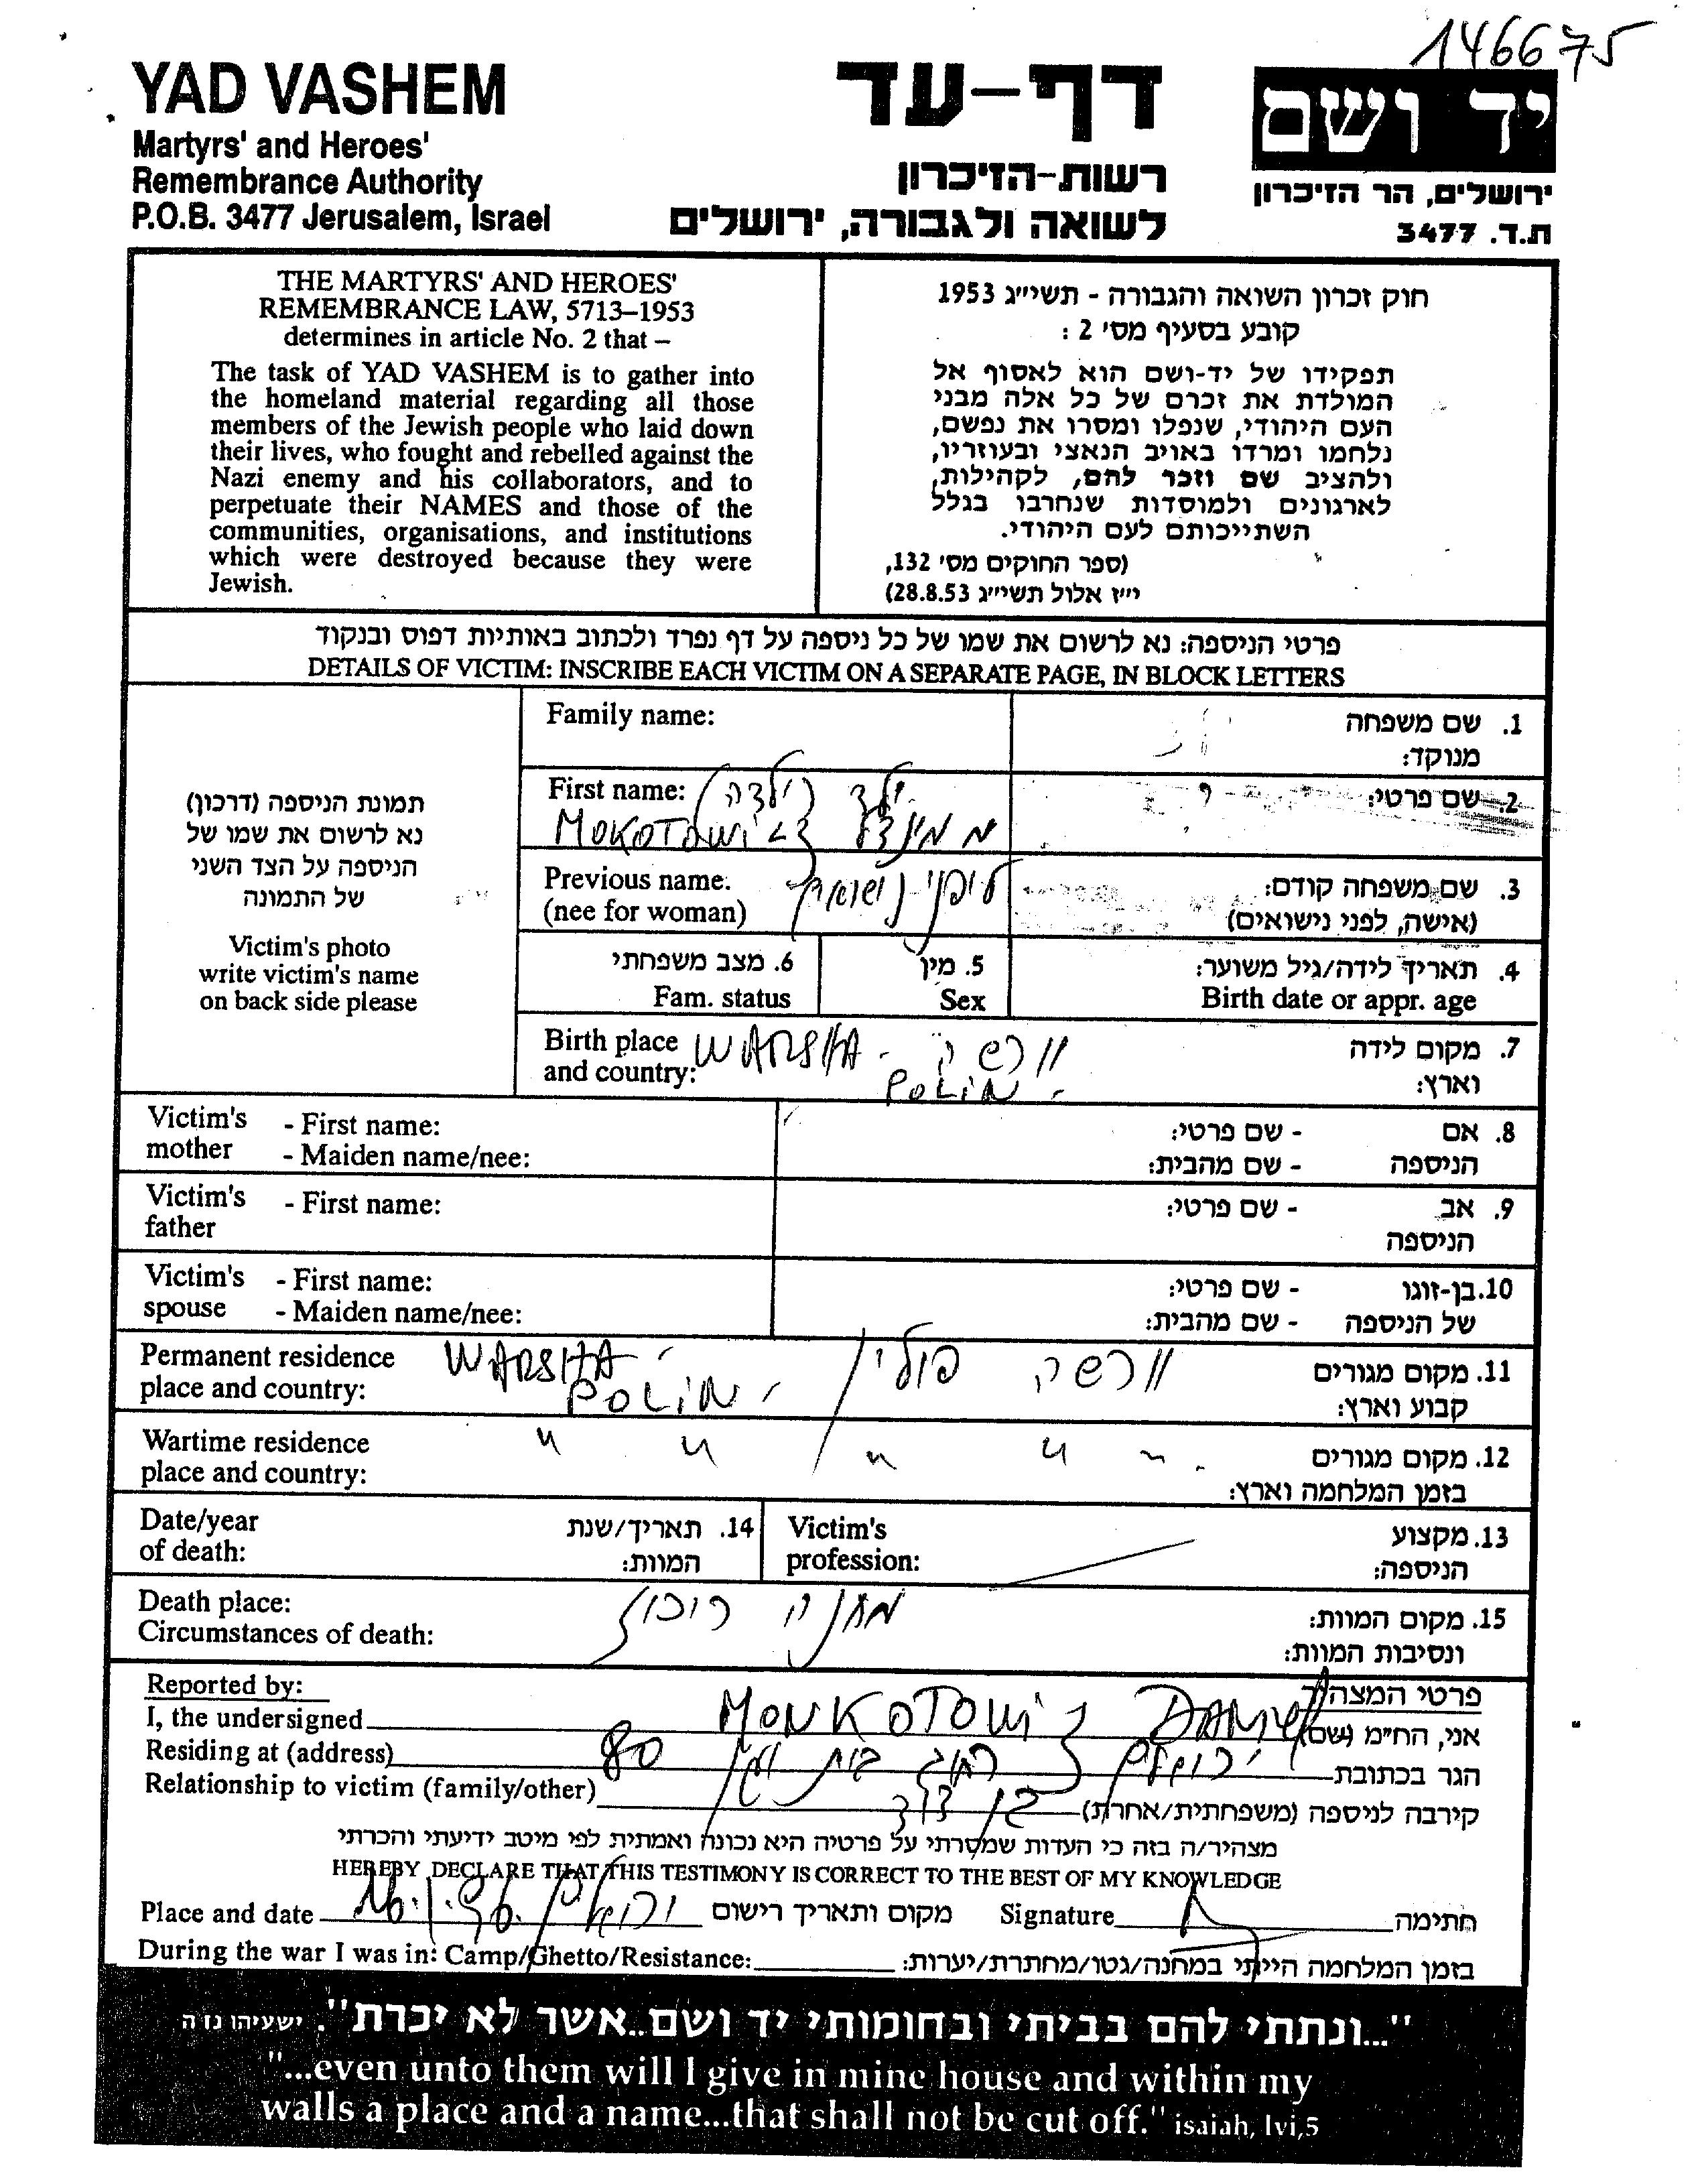 146675
YAD VASHEM
Martyrs' and Heroes'
Remembrance Authority
P.O.B. 3477 Jerusalem, Israel
דף-עד
רשות-הזיכרון
לשואה ולגבורה, ירושלים
יד ושם
ירושלים, הר הזיכרון
ת.ד. 3477
THE MARTYRS' AND HEROES'
REMEMBRANCE LAW, 5713–1953
determines in article No. 2 that –
The task of YAD VASHEM is to gather into
the homeland material regarding all those
members of the Jewish people who laid down
their lives, who fought and rebelled against the
Nazi enemy and his collaborators, and to
perpetuate their NAMES and those of the
communities, organisations, and institutions
which were destroyed because they were
Jewish.
חוק זכרון השואה והגבורה - תשי״ג 1953
קובע בסעיף מס' 2 :
תפקידו של יד-ושם הוא לאסוף אל
המולדת את זכרם של כל אלה מבני
העם היהודי, שנפלו ומסרו את נפשם,
נלחמו ומרדו באויב הנאצי ובעוזריו,
ולהציב שם וזכר להם, לקהילות,
לארגונים ולמוסדות שנחרבו בגלל
השתייכותם לעם היהודי.
(ספר החוקים מס' 132,
י״ז אלול תשי״ג 28.8.53)
פרטי הניספה: נא לרשום את שמו של כל ניספה על דף נפרד ולכתוב באותיות דפוס ובנקוד
DETAILS OF VICTIM: INSCRIBE EACH VICTIM ON A SEPARATE PAGE, IN BLOCK LETTERS
תמונת הניספה (דרכון)
נא לרשום את שמו של
הניספה על הצד השני
של התמונה
Victim's photo
write victim's name
on back side please
Family name:
1. שם משפחה
מנוקד:
First name: ילד (ילדה)
2. שם פרטי:
MOKOTOWi
Previous name:
(nee for woman)
3. שם משפחה קודם:
(אישה, לפני נישואים)
6. מצב משפחתי
Fam. status
5. מין
Sex
4. תאריך לידה/גיל משוער:
Birth date or appr. age
Birth place
and country:
WARSHA - ורשה
POLiN -
7. מקום לידה
וארץ:
Victim's
mother
- First name:
- Maiden name/nee:
- שם פרטי:
- שם מהבית:
8. אם
הניספה
Victim's
father
- First name:
- שם פרטי:
9. אב
הניספה
Victim's
spouse
- First name:
- Maiden name/nee:
- שם פרטי:
- שם מהבית:
10. בן-זוגו
של הניספה
Permanent residence
place and country:
WARSHA -
POLiN -
ורשה פולין
11. מקום מגורים
קבוע וארץ:
Wartime residence
place and country:
" " " "
12. מקום מגורים
בזמן המלחמה וארץ:
Date/year
of death:
14. תאריך/שנת
המוות:
Victim's
profession:
13. מקצוע
הניספה:
Death place:
Circumstances of death:
מחנה ריכוז
15. מקום המוות:
ונסיבות המוות:
Reported by:
פרטי המצהיר
I, the undersigned MONKOTOWi DANiel אני, הח״מ (שם)
Residing at (address) 80 ירושלים הגר בכתובת
Relationship to victim (family/other) בן דוד קירבה לניספה (משפחתית/אחרת)
מצהיר/ה בזה כי העדות שמסרתי על פרטיה היא נכונה ואמתית לפי מיטב ידיעתי והכרתי
HEREBY DECLARE THAT THIS TESTIMONY IS CORRECT TO THE BEST OF MY KNOWLEDGE
Place and date 16.1.96 ירושלים מקום ותאריך רישום Signature חתימה
During the war I was in: Camp/Ghetto/Resistance: בזמן המלחמה הייתי במחנה/גטו/מחתרת/יערות:
"...ונתתי להם בביתי ובחומותי יד ושם...אשר לא יכרת". ישעיהו נו ה
"...even unto them will I give in mine house and within my
walls a place and a name...that shall not be cut off." isaiah, lvi,5